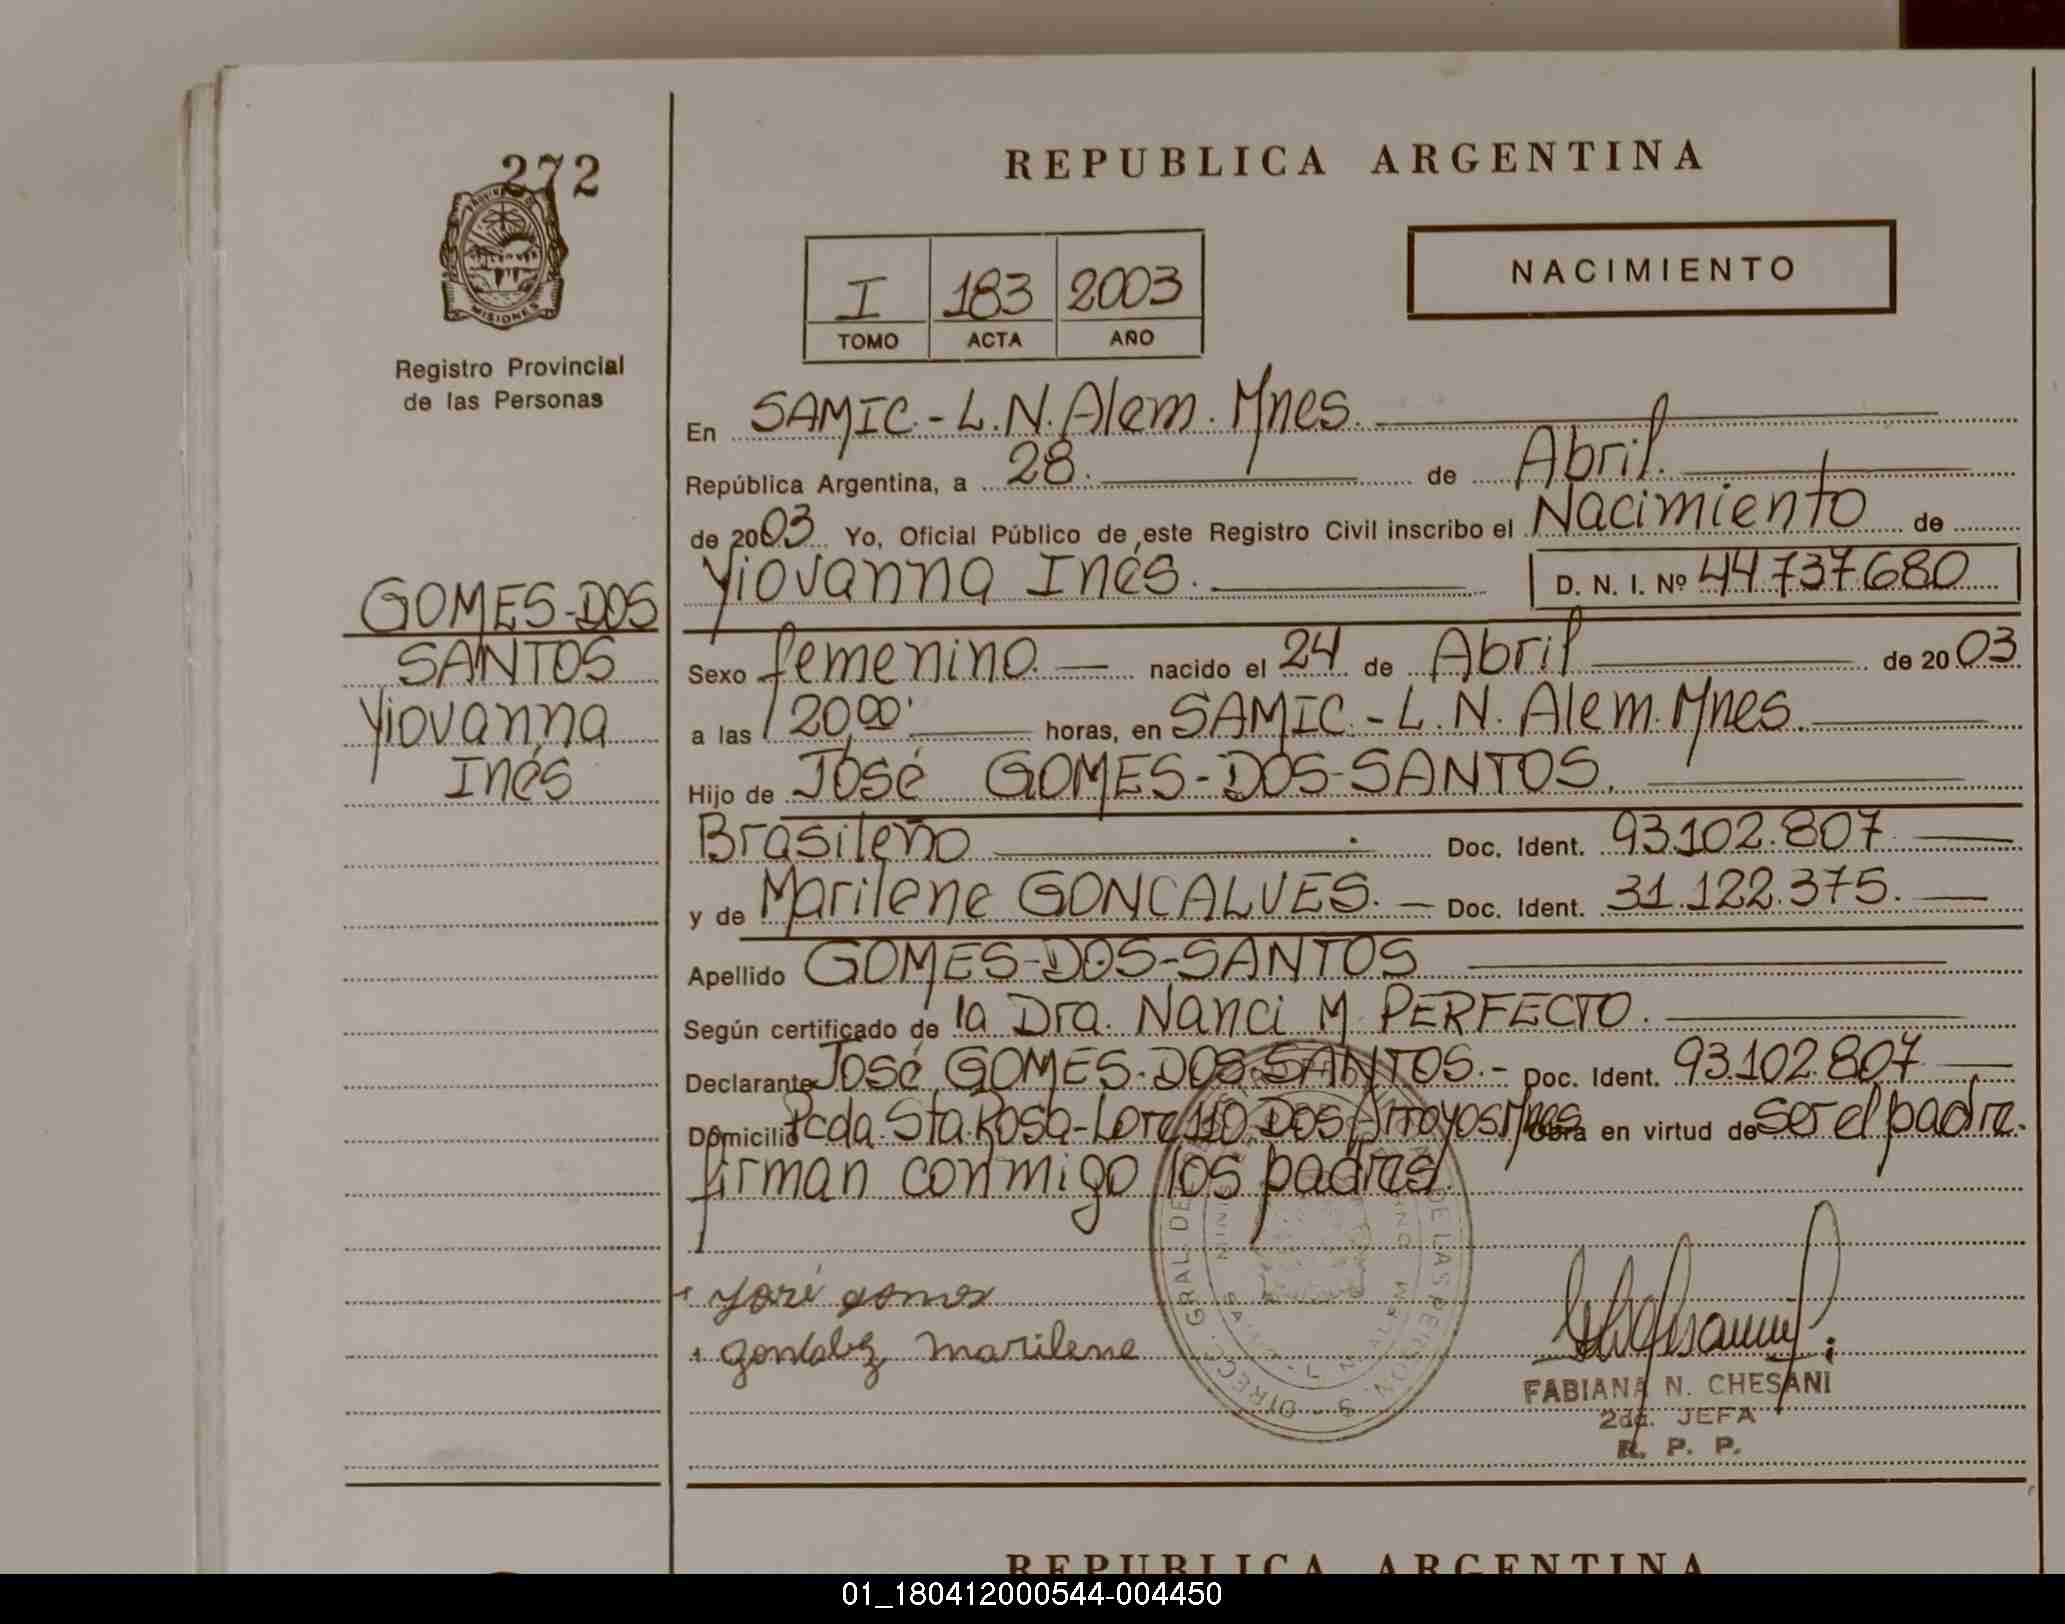 272
PROVINCIA DE
MISIONES
Registro Provincial
de las Personas
GOMES-DOS
SANTOS
Yiovanna
Inés
REPUBLICA ARGENTINA
I 183 2003
TOMO ACTA AÑO
NACIMIENTO
En SAMIC.-L.N.Alem.Mnes.
República Argentina, a 28. de Abril.
de 2003 Yo, Oficial Público de este Registro Civil inscribo el Nacimiento de
Yiovanna Inés. D. N. I. Nº 44.737.680
Sexo femenino. nacido el 24 de Abril de 2003
a las 20,00 horas, en SAMIC.-L.N.Alem.Mnes.
Hijo de José GOMES-DOS-SANTOS.
Brasileño Doc. Ident. 93.102.807
y de Marilene GONCALVES. Doc. Ident. 31.122.375.
Apellido GOMES-DOS-SANTOS
Según certificado de la Dra. Nanci M. PERFECTO.
Declarante José GOMES-DOS-SANTOS.- Doc. Ident. 93.102.807
Domicilio Pcda.Sta.Rosa-Lote 110.Dos Arroyos Mnes Obra en virtud de ser el padre.
firman conmigo los padres.
José gomes
marilene
FABIANA N. CHESANI
2da. JEFA
R. P. P.
REPUBLICA ARGENTINA
01_180412000544-004450